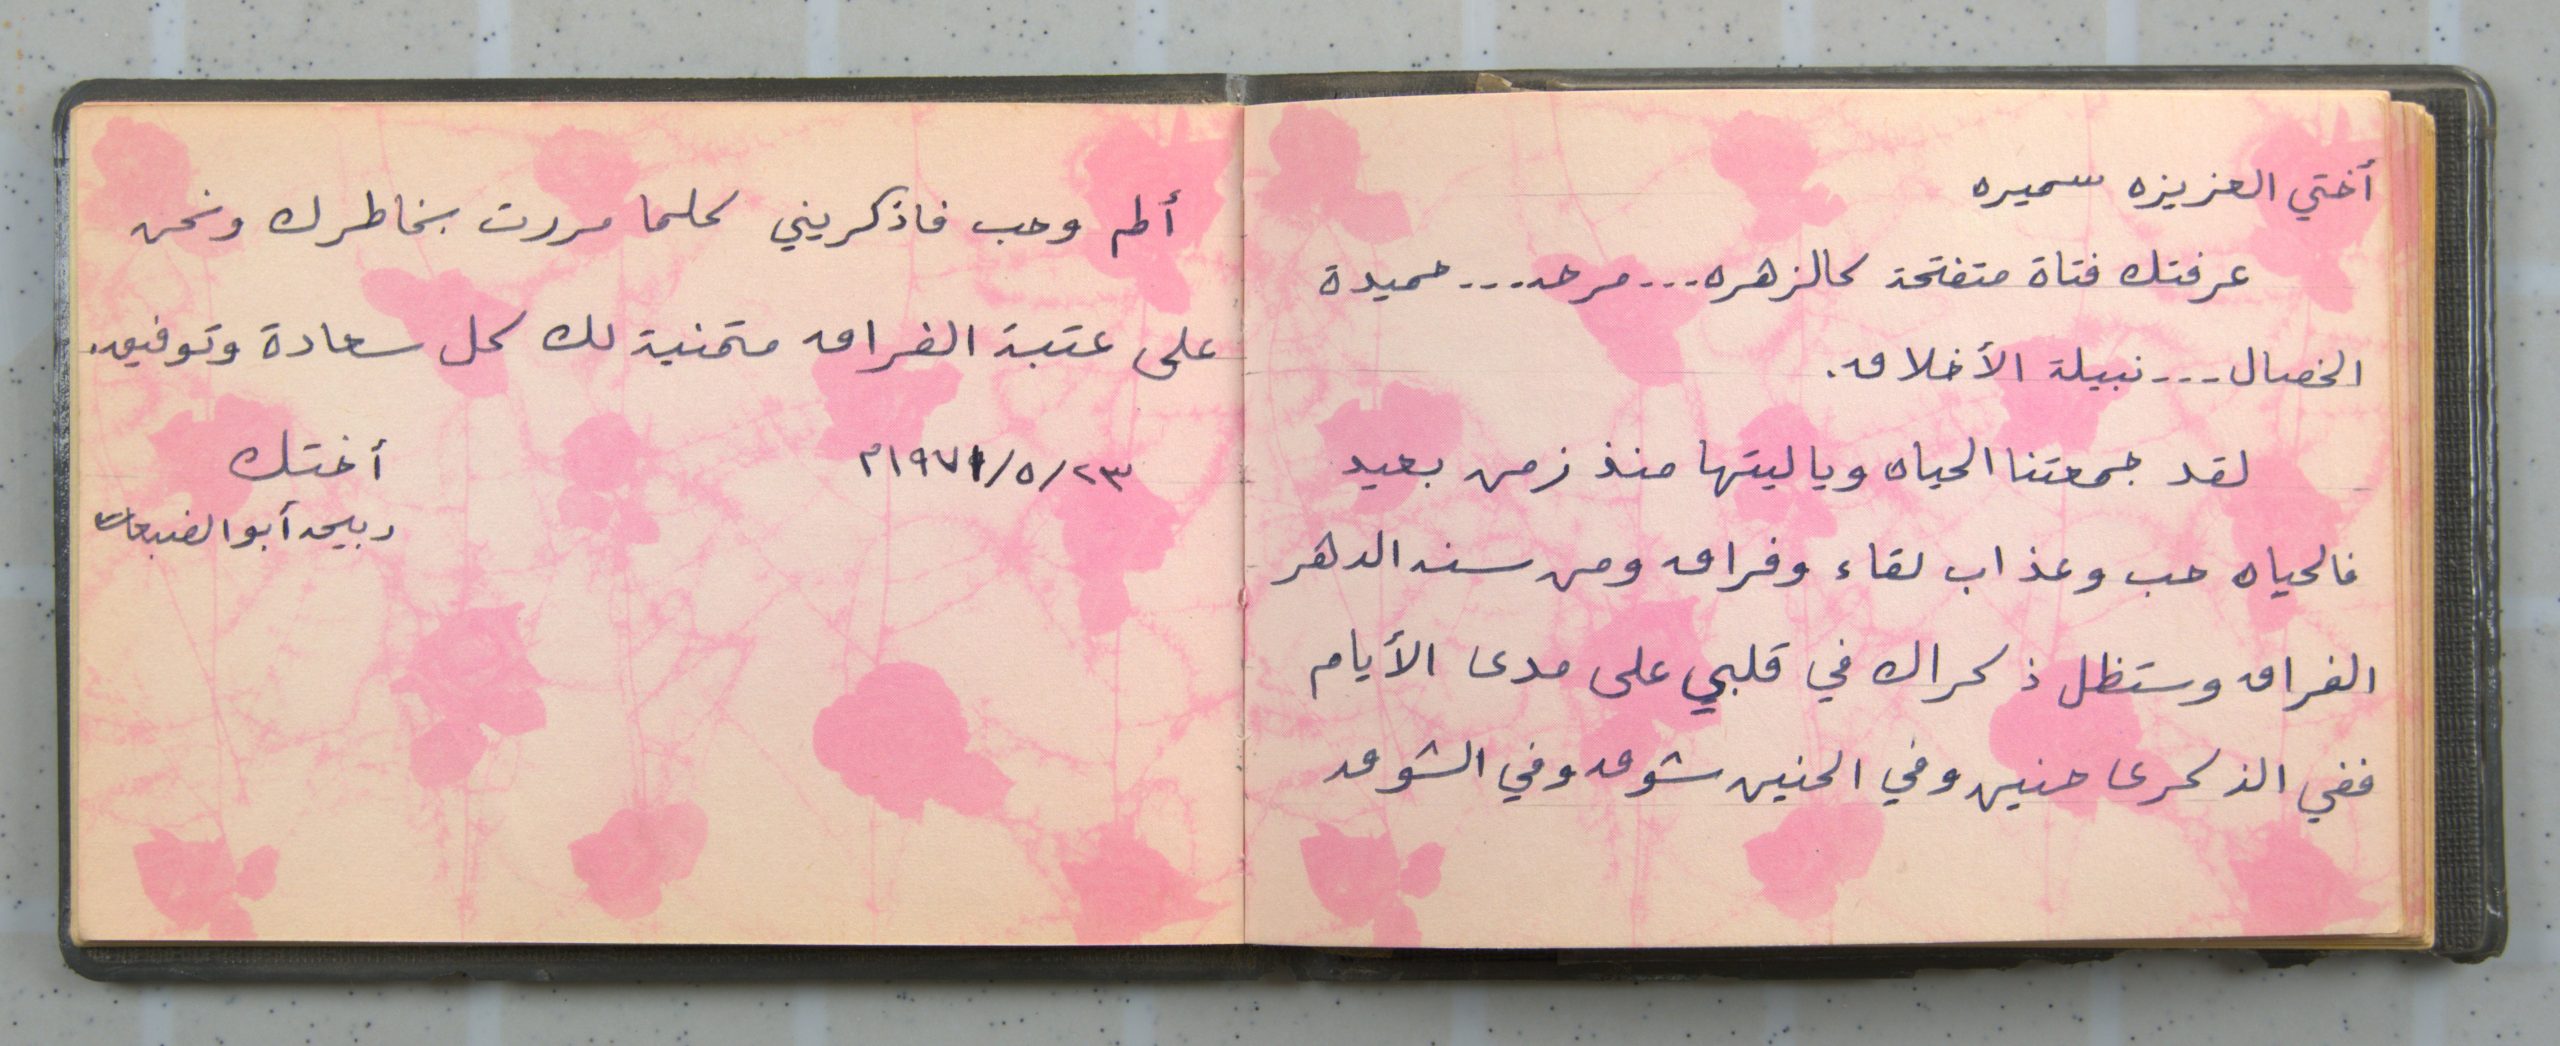 أختي العزيزه سميره
عرفتك فتاة متفتحة كالزهره...مرحه...حميدة
الخصال...نبيلة الأخلاق.
لقد جمعتنا الحياه وياليتها منذ زمن بعيد
فالحياه حب وعذاب لقاء وفراق ومن سنه الدهر
الفراق وستظل ذكراك في قلبي على مدى الأيام
ففي الذكرى حنين وفي الحنين شوق وفي الشوق
ألم وحب فاذكريني كلما مررت بخاطرك ونحن
على عتبة الفراق متمنية لك كل سعادة وتوفيق.
٢٣/٥/١٩٧١م
أختك
ربيحه أبو الضبعات